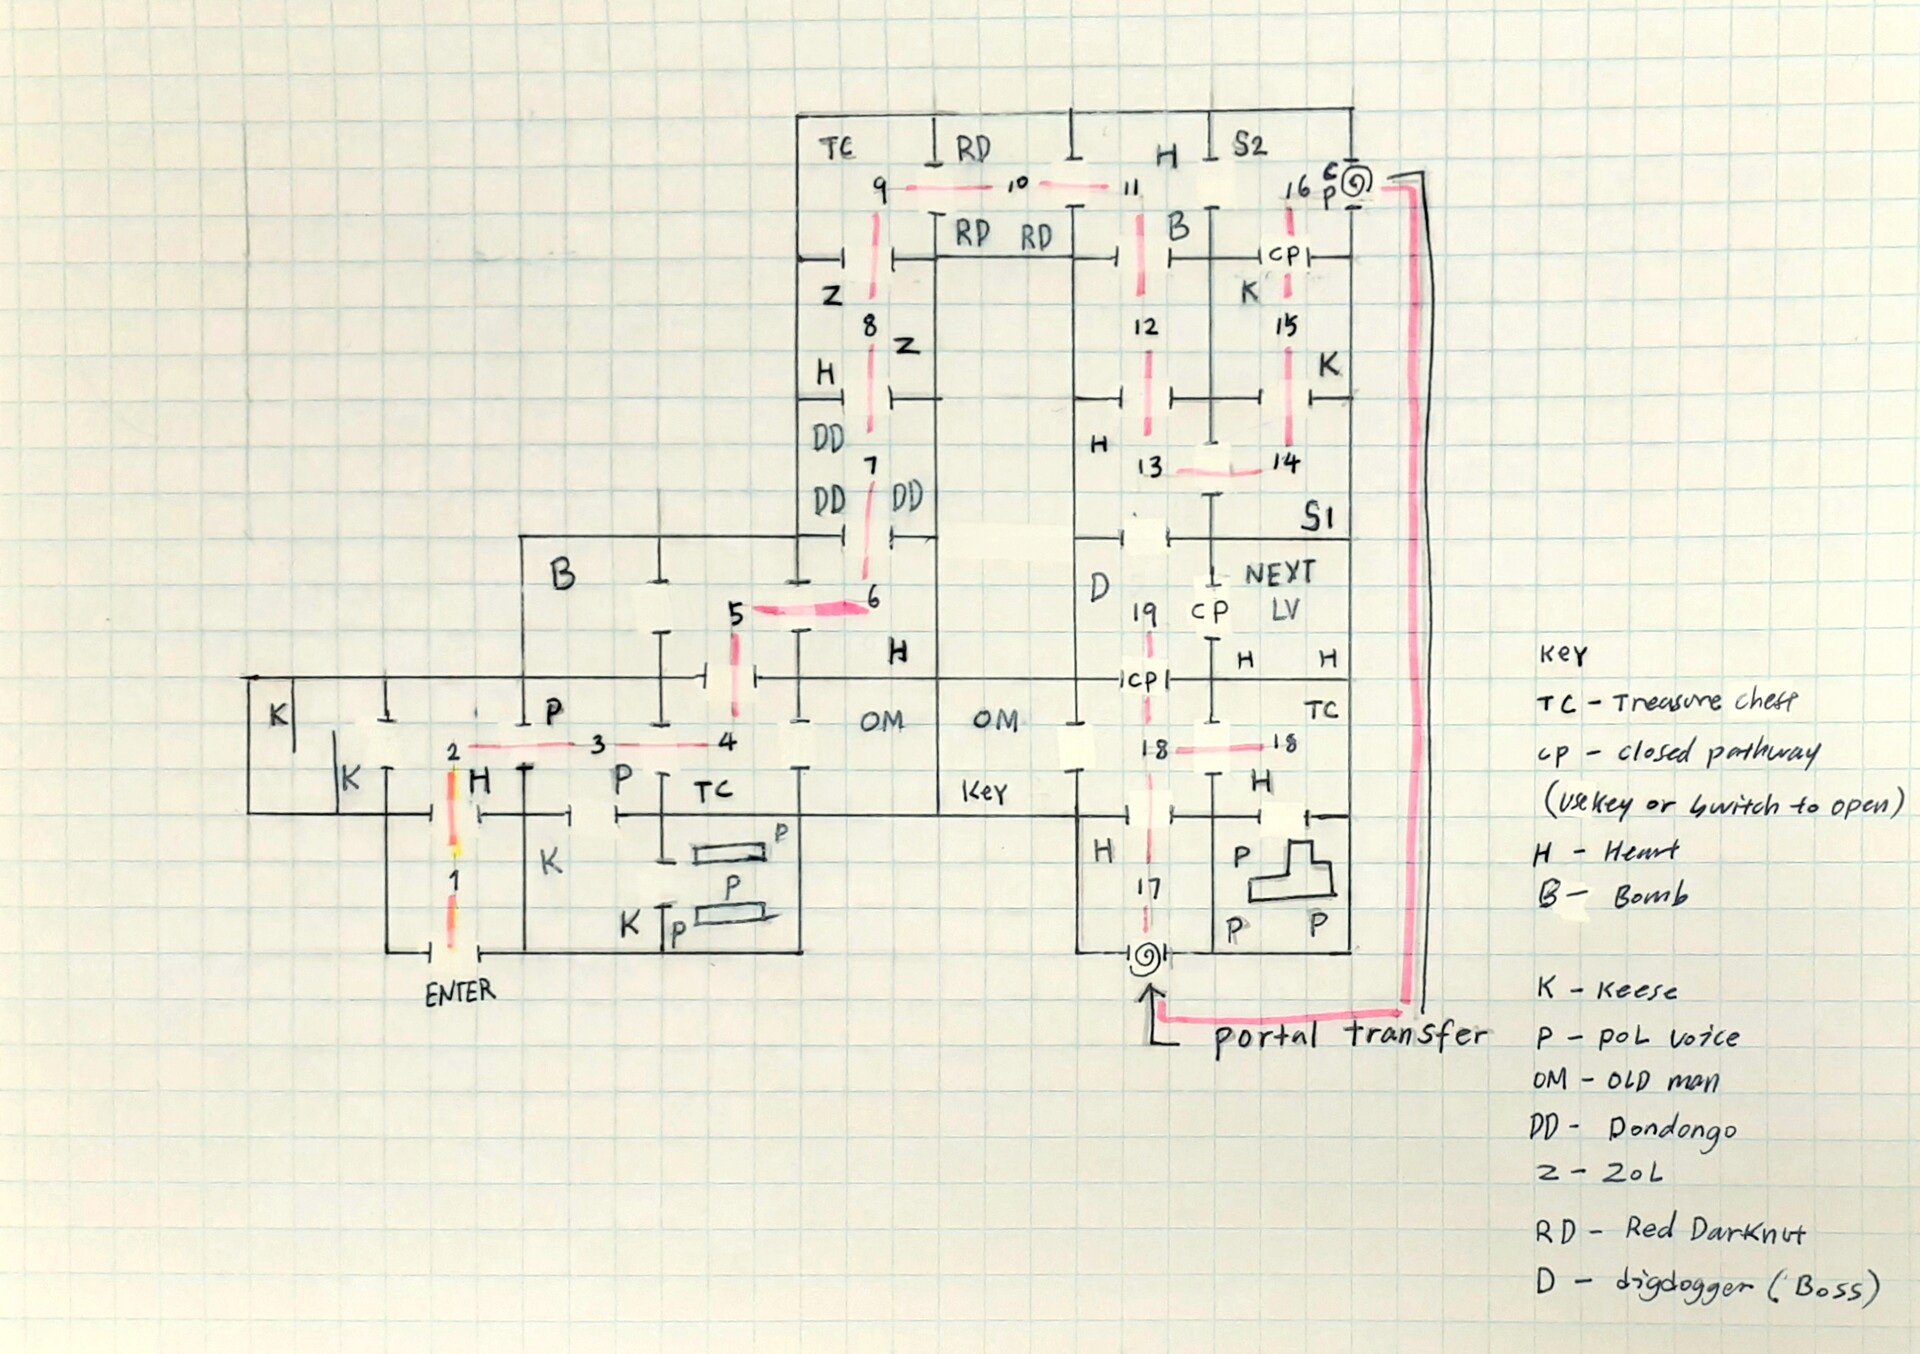 TC RD H S2
9 10 11 16 C P
RD RD B
CP
Z K
8 12 15
Z
H K
DD H
7 13 14
DD DD S1
B D NEXT
5 6 19 CP LV
H H H
CP
K P OM OM TC
2 3 4 18 18
K H P TC Key H
P
K H P
1 P 17
K P P P
ENTER
portal transfer
Key
TC - Treasure chest
CP - closed pathway
(use key or switch to open)
H - Heart
B - Bomb
K - Keese
P - poL voice
OM - OLD man
DD - Dondongo
Z - ZoL
RD - Red DarKnut
D - digdogger (Boss)